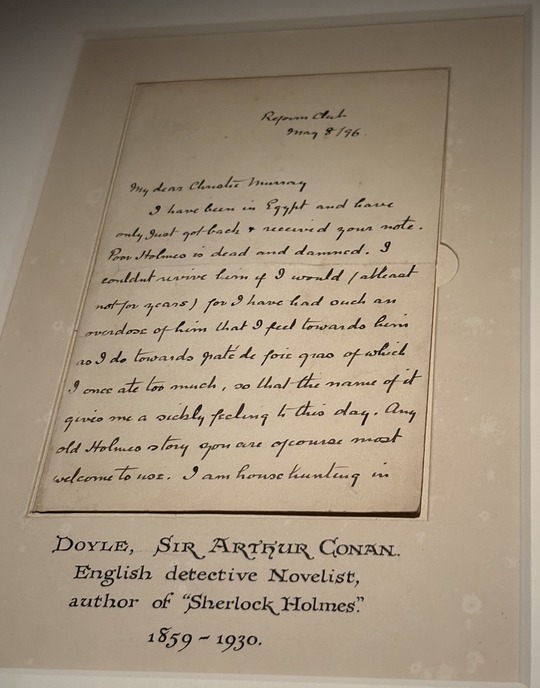 Reform Club
May 8/96.
My dear Christie Murray
I have been in Egypt and have
only just got back & received your note.
Poor Holmes is dead and damned. I
couldnt revive him if I would (atleast
not for years) for I have had such an
overdose of him that I feel towards him
as I do towards paté de foie gras of which
I once ate too much, so that the name of it
gives me a sickly feeling to this day. Any
old Holmes story you are ofcourse most
welcome to use. I am house hunting in
DOYLE, SIR ARTHUR CONAN.
English detective Novelist,
author of "Sherlock Holmes".
1859 - 1930.